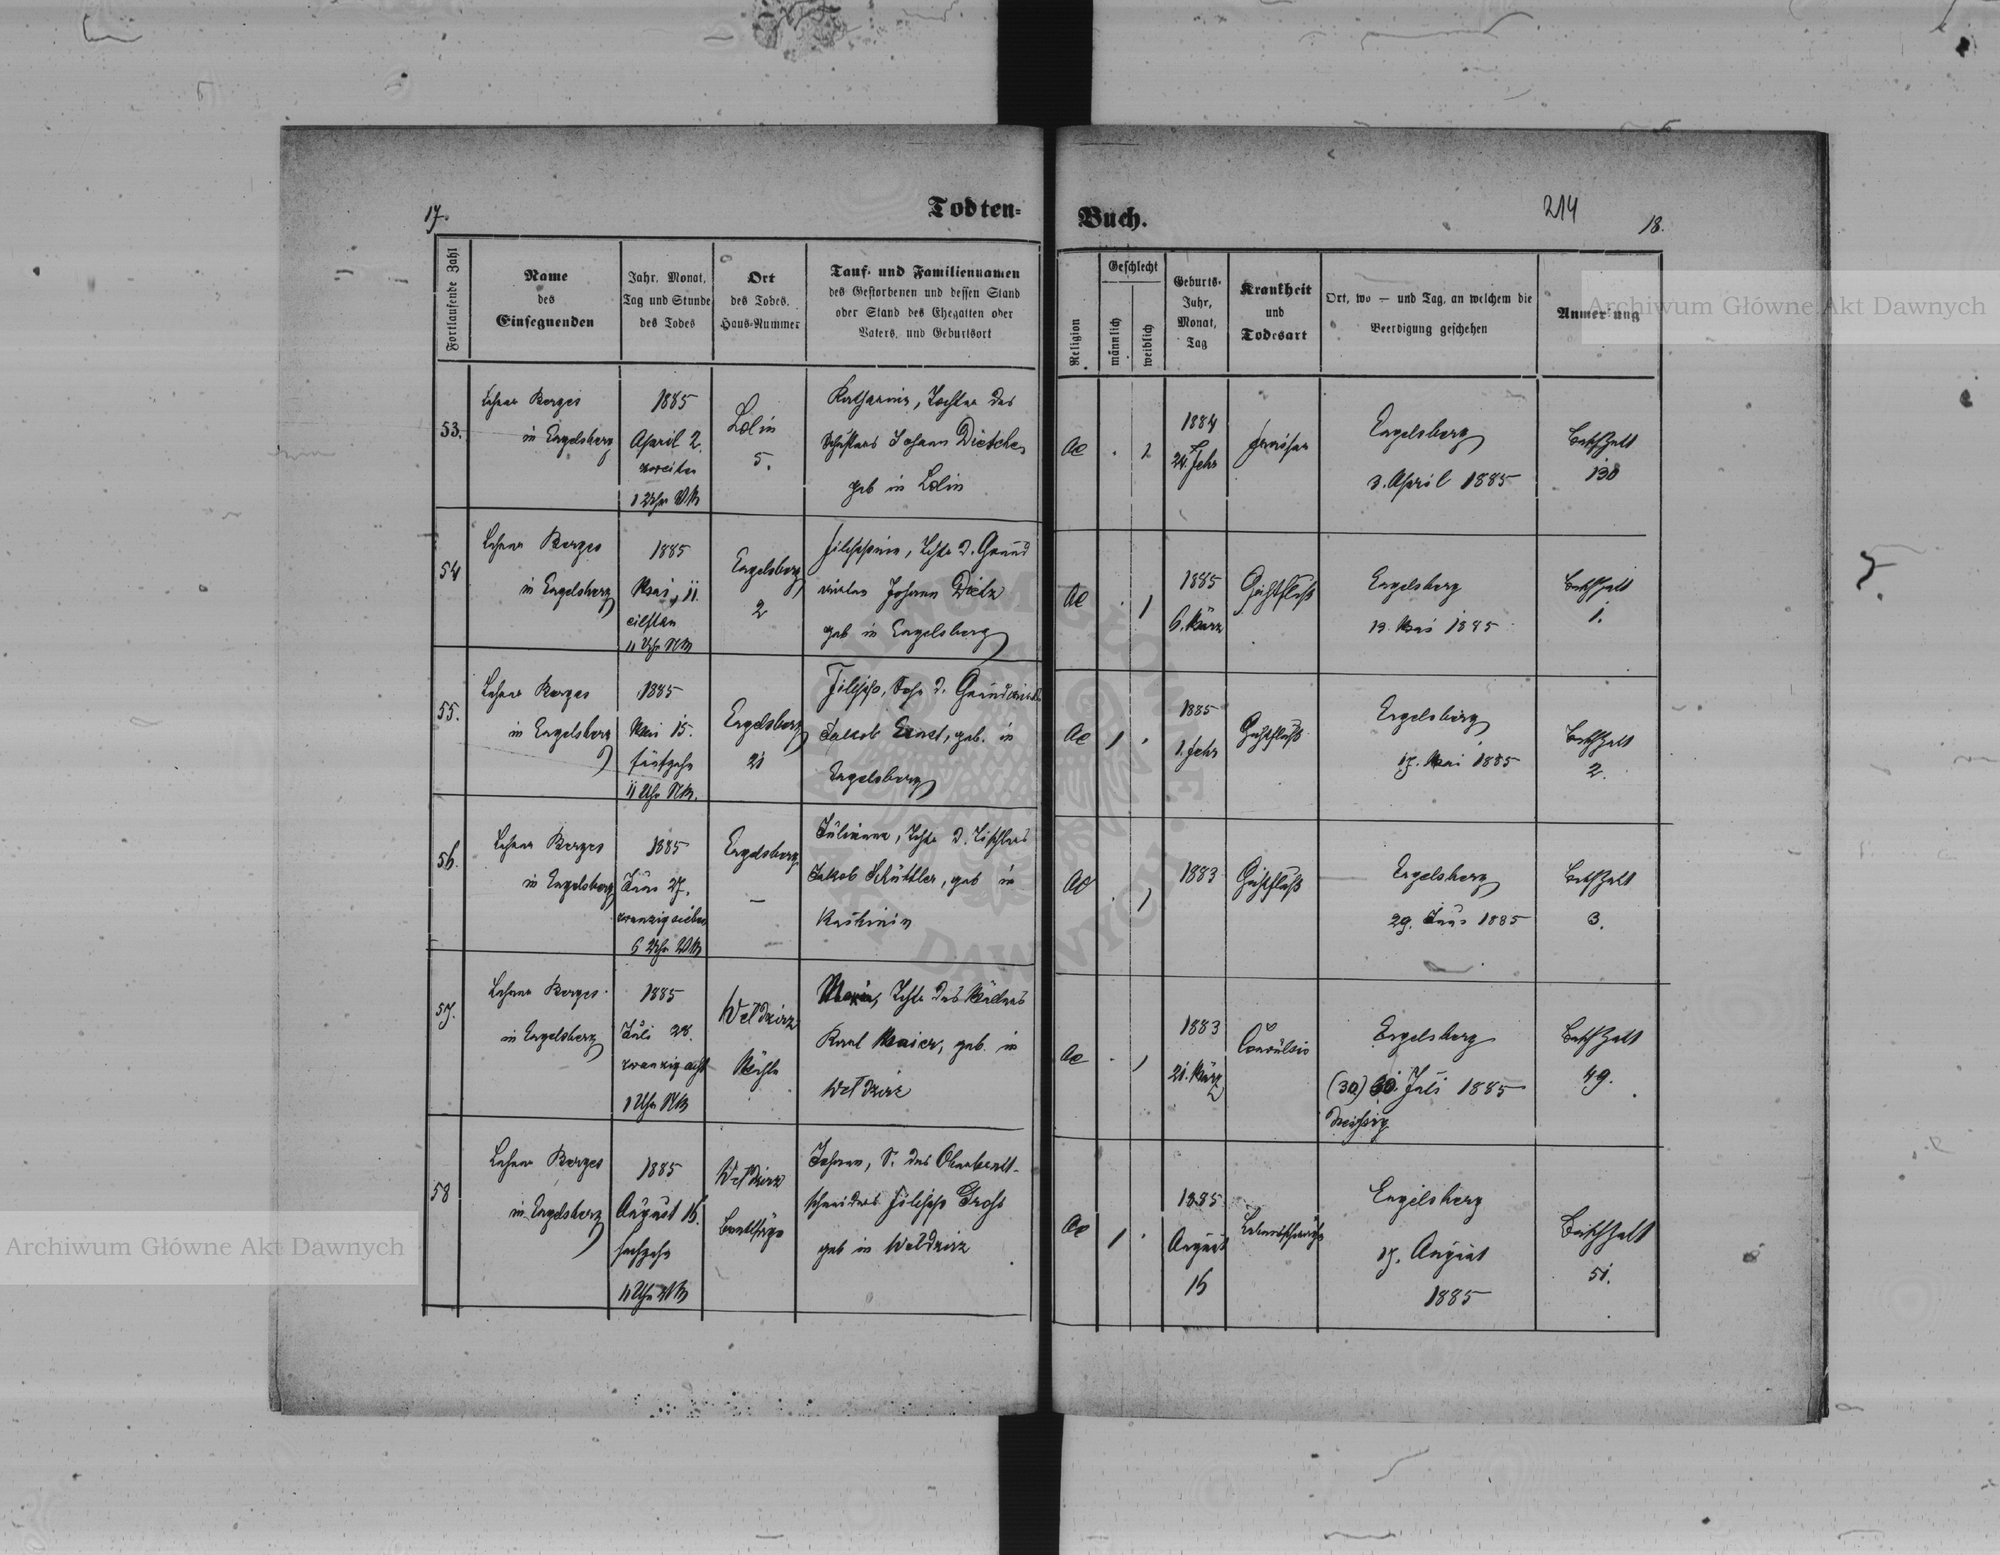 17.
Todten-
Buch.
214
18.
Fortlaufende Zahl
Name
des
Einsegnenden
Jahr, Monat,
Tag und Stunde
des Todes
Ort
des Todes,
Haus-Nummer
Tauf- und Familiennamen
des Gestorbenen und dessen Stand
oder Stand des Ehegatten oder
Vaters, und Geburtsort
Religion
Geschlecht
männlich
weiblich
Geburts-
Jahr,
Monat,
Tag
Krankheit
und
Todesart
Ort, wo — und Tag, an welchem die
Beerdigung geschehen
Anmerkung
53.
Lehrer Borges
in Engelsberg
1885
April 2.
zweiten
1 Uhr VM
Lolin
5.
Katharina, Tochter des
Johann Dietsche,
geb in Lolin
AC
1884
24. Febr
Fraisen
Engelsberg
3. April 1885
130
54
Lehrer Borges
in Engelsberg
1885
Mai, 11.
eilften
11 Uhr NM
Engelsberg
2
Filippine, Tchtr d. Grund
wirtes Johann Dietz
geb in Engelsberg
AC
1
1885
6. März
Engelsberg
13. Mai 1885
1.
55.
Lehrer Borges
in Engelsberg
1885
Mai 15.
fünfzehn
11 Uhr NM.
Engelsberg
21
Filipp, Sohn d. Grundwirts
Jakob Ernst, geb. in
Engelsberg
AC
1
1885
1. Febr
Engelsberg
17. Mai 1885
2.
56.
Lehrer Borges
in Engelsberg
1885
Juni 27.
zwanzigsieben
6 Uhr VM
Engelsberg
—
Juliana, Tchtr d. Tischlers
Jakob Schüttler, geb in
AC
1
1883
Engelsberg
29. Juni 1885
3.
57.
Lehrer Borges
in Engelsberg
1885
Juli 28.
zwanzigacht
1 Uhr NM
Weldzirz
Mühle
Maria, Tchtr des Müllers
Karl Maier, geb. in
Weldzirz
AC
1
1883
21. März
Convulsio
Engelsberg
(30) 30. Juli 1885
dreissig
49.
58
Lehrer Borges
in Engelsberg
1885
August 16.
sechzehn
11 Uhr VM
Weldzirz
Brettsäge
Johann, S. des Oberbrett-
schneiders Filipp Groß
geb in Weldzirz
AC
1
1885
August
16
Lebensschwäche
Engelsberg
17. August
1885
51.
Archiwum Główne Akt Dawnych
Archiwum Główne Akt Dawnych